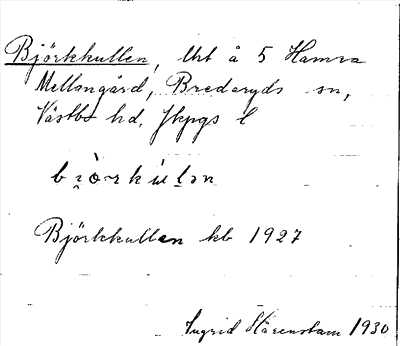 Björkkullen, Urt å 5 Hamra
Mellangård, Bredaryds sn,
Västbo hd. Jkpgs l
Björkkullen kb 1927
Ingrid Härenstam 1930